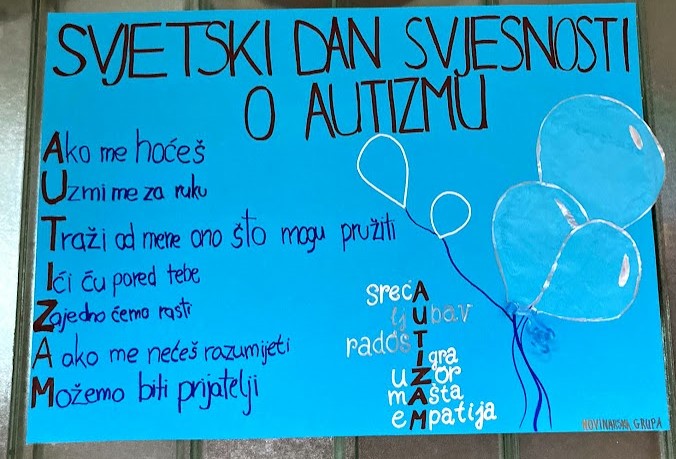 SVJETSKI DAN SVJESNOSTI
O AUTIZMU
Ako me hoćeš
Uzmi me za ruku
Traži od mene ono što mogu pružiti
Ići ću pored tebe
Zajedno ćemo rasti
A ako me nećeš razumijeti
Možemo biti prijatelji
srećA
ljUbav
radosT
Igra
uZor
mAšta
eMpatija
NOVINARSKA GRUPA